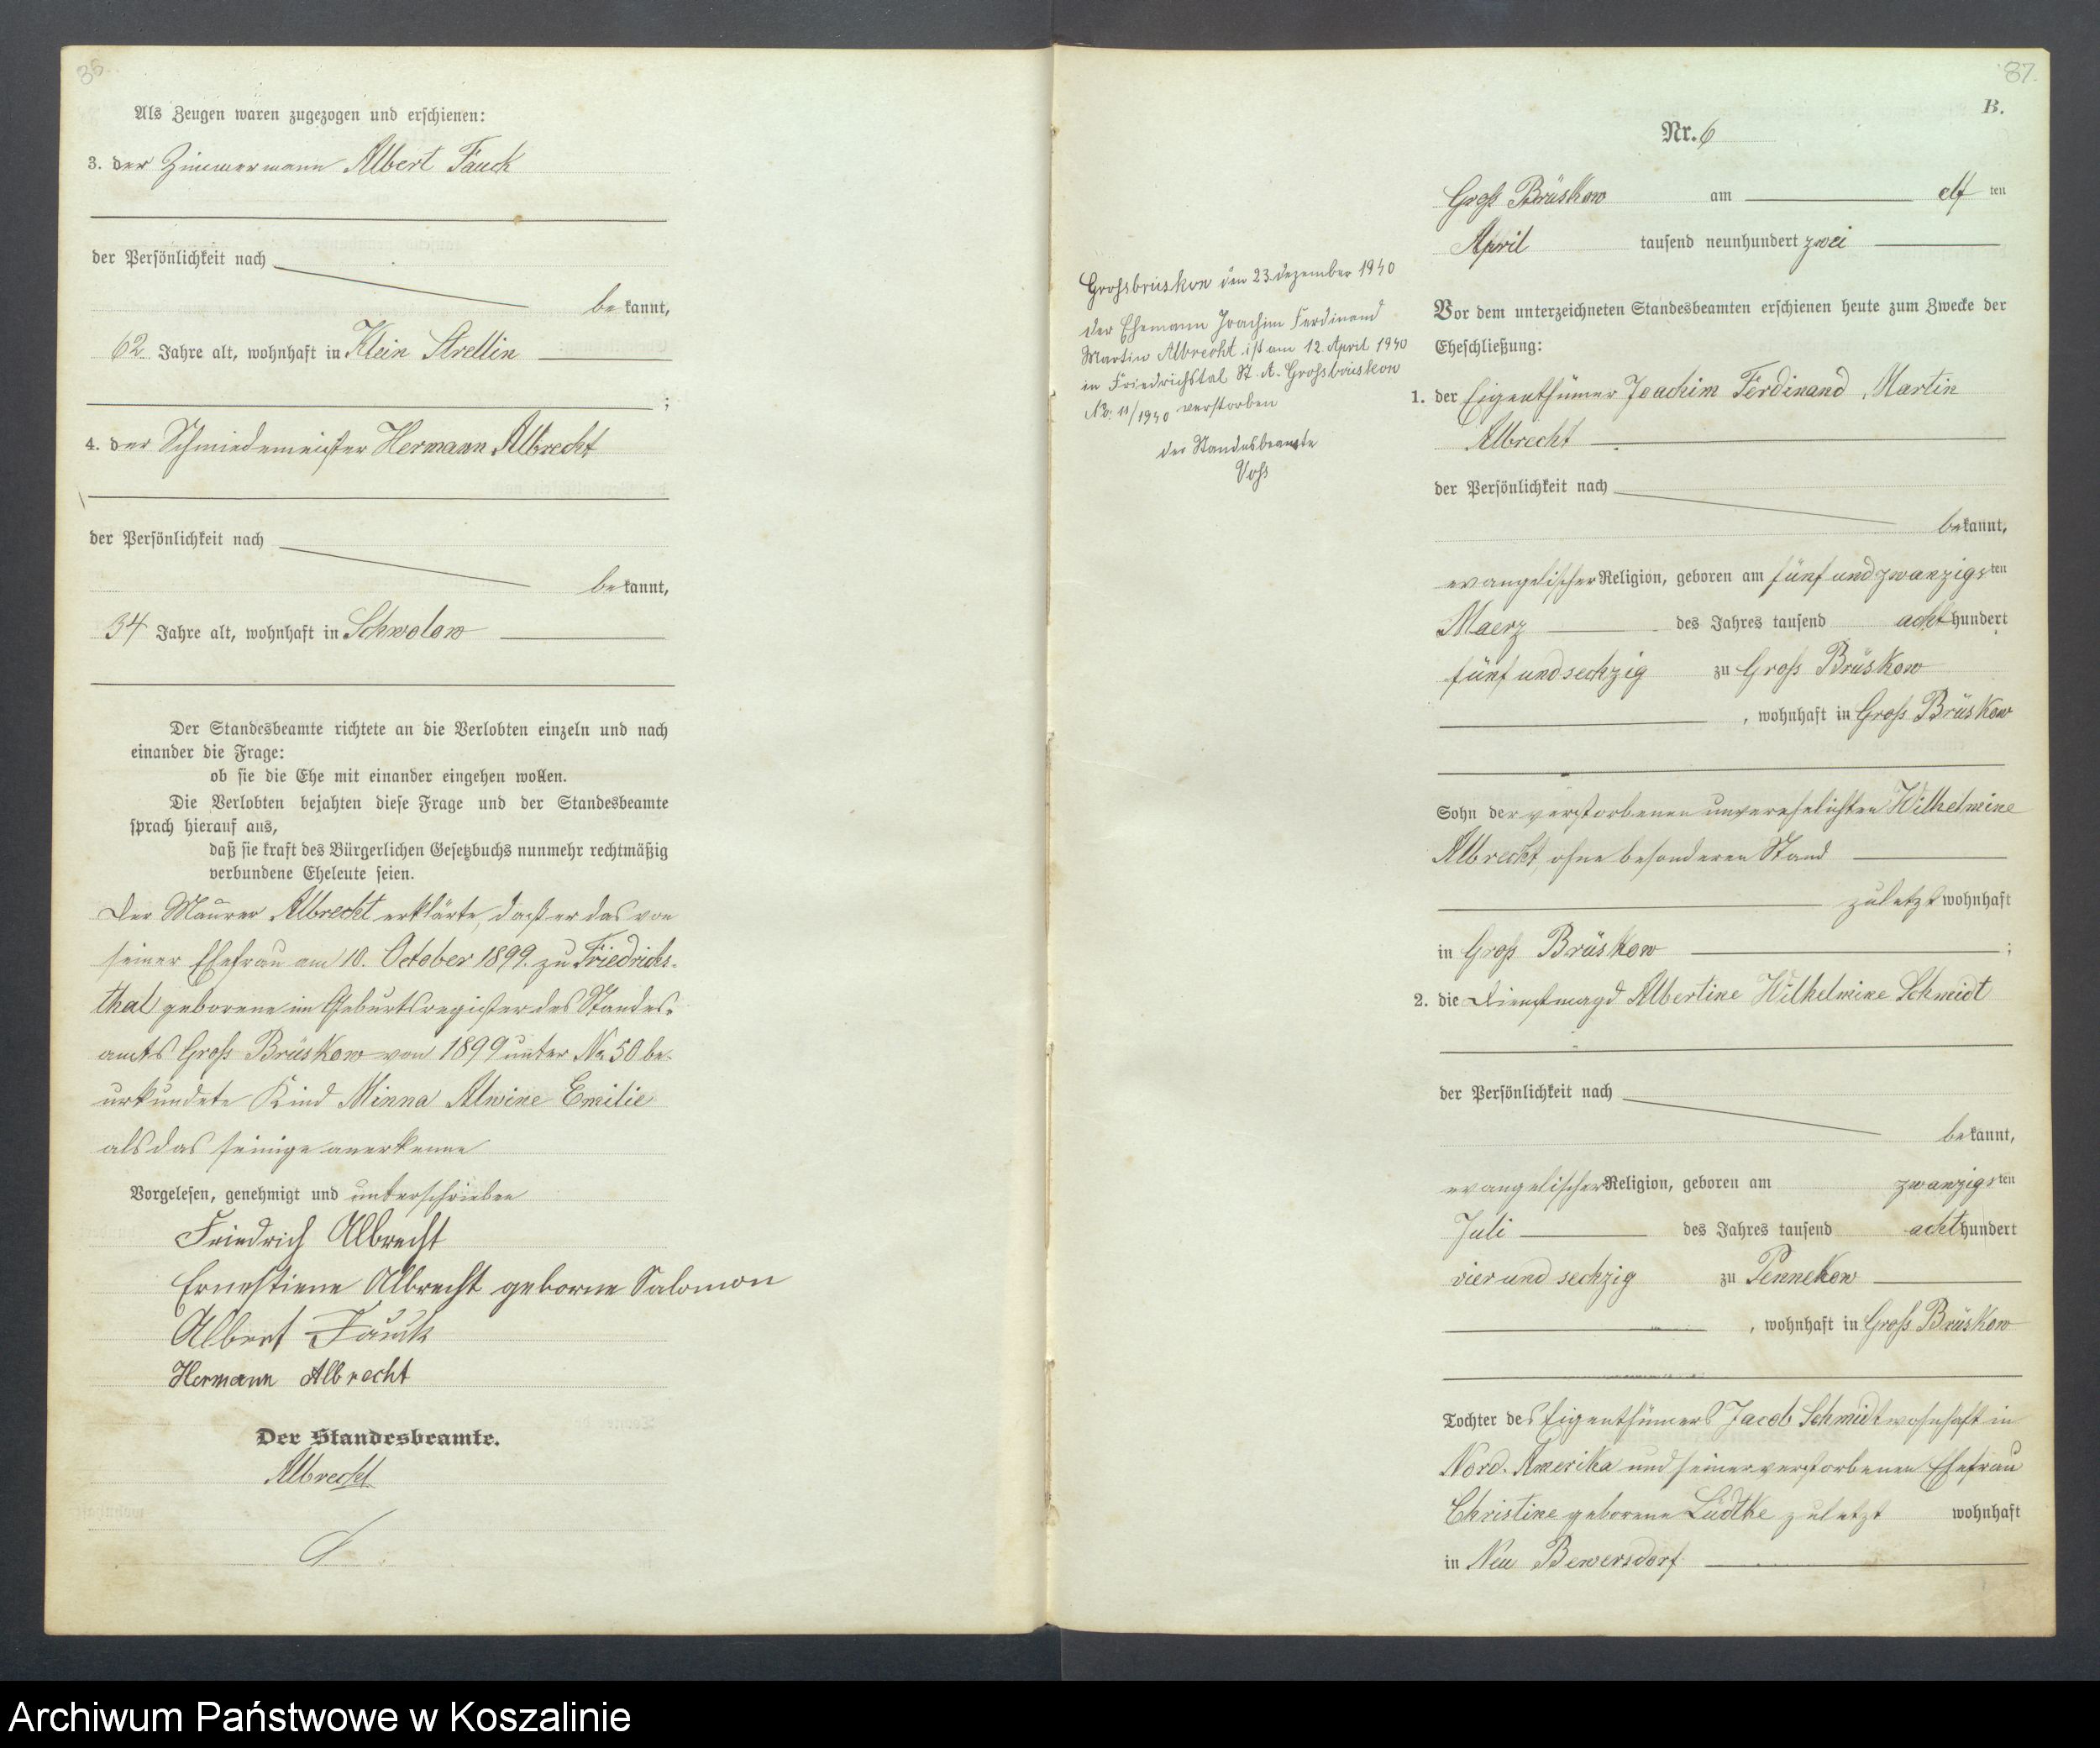 35.
Als Zeugen waren zugezogen und erschienen:
3. der Zimmermann Albert Fauck
der Persönlichkeit nach
bekannt,
62 Jahre alt, wohnhaft in Klein Strellin
;
4. der Schmiedemeister Hermann Albrecht
der Persönlichkeit nach
bekannt,
34 Jahre alt, wohnhaft in Schwolow
Der Standesbeamte richtete an die Verlobten einzeln und nach
einander die Frage:
ob sie die Ehe mit einander eingehen wollen.
Die Verlobten bejahten diese Frage und der Standesbeamte
sprach hierauf aus,
daß sie kraft des Bürgerlichen Gesetzbuchs nunmehr rechtmäßig
verbundene Eheleute seien.
Der Maurer Albrecht erklärte, daß er das von
seiner Ehefrau am 10. October 1899. zu Friedrichs-
thal geborene im Geburtsregister des Standes-
amts Groß Brüskow von 1899 unter No 50 be-
urkundete Kind Minna Alwine Emilie
als das seinige anerkenne
Vorgelesen, genehmigt und unterschrieben
Friedrich Albrecht
Ernestiene Albrecht geborne Salomon
Albert Fauck
Hermann Albrecht
Der Standesbeamte.
Albrecht
87.
B.
Nr. 6
Groß Brüskow am elf ten
April tausend neunhundert zwei
Grossbrüskow den 23. Dezember 1940
Der Ehemann Joachim Ferdinand
Martin Albrecht ist am 12. April 1940
in Friedrichstal St. A. Grossbrüskow
No: 11/1940 verstorben
der Standesbeamte
Voß
Vor dem unterzeichneten Standesbeamten erschienen heute zum Zwecke der
Eheschließung:
1. der Eigenthümer Joachim Ferdinand, Martin
Albrecht
der Persönlichkeit nach
bekannt,
evangelischer Religion, geboren am fünf und zwanzigsten
Maerz des Jahres tausend achthundert
fünf und sechzig zu Groß Brüskow
, wohnhaft in Groß Brüskow
Sohn der verstorbenen unverehelichten Wilhelmine
Albrecht, ohne besonderen Stand
zuletzt wohnhaft
in Groß Brüskow ;
2. die Dienstmagd Albertine Wilhelmine Schmidt
der Persönlichkeit nach
bekannt,
evangelischer Religion, geboren am zwanzigsten
Juli des Jahres tausend achthundert
vier und sechzig zu Pennekow
, wohnhaft in Groß Brüskow
Tochter des Eigenthümers Jacob Schmidt wohnhaft in
Nord-Amerika und seiner verstorbenen Ehefrau
Christine geborene Lüdtke zuletzt wohnhaft
in Neu Bewersdorf
Archiwum Państwowe w Koszalinie